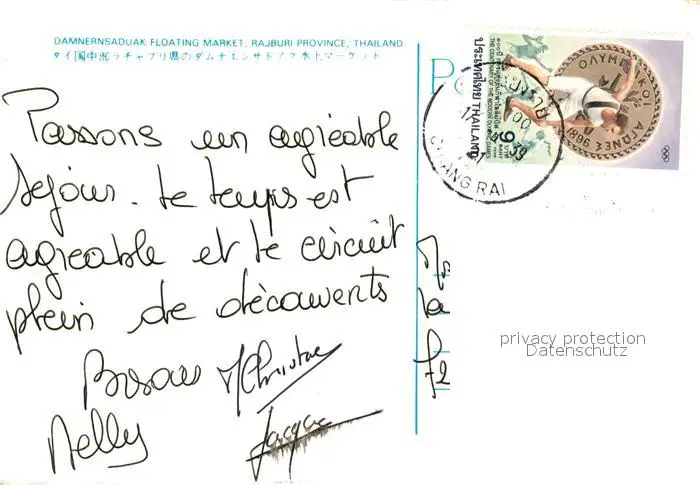 DAMNERNSADUAK FLOATING MARKET, RAJBURI PROVINCE, THAILAND
タイ国中部ラチャブリ県のダムナエンサドアク水上マーケット
Passons un agréable
séjour. Le temps est
agréable et le circuit
plein de découverts
Bisous M Christine
Nelly
Jacques
P
ประเทศไทย THAILAND
THE CENTENARY OF THE MODERN OLYMPIC GAMES
9 บาท BAHT
ΟΛΥΜΠΙΑΚΟΙ
ΑΓΩΝΕΣ
1896
CHIANG RAI
privacy protection
Datenschutz